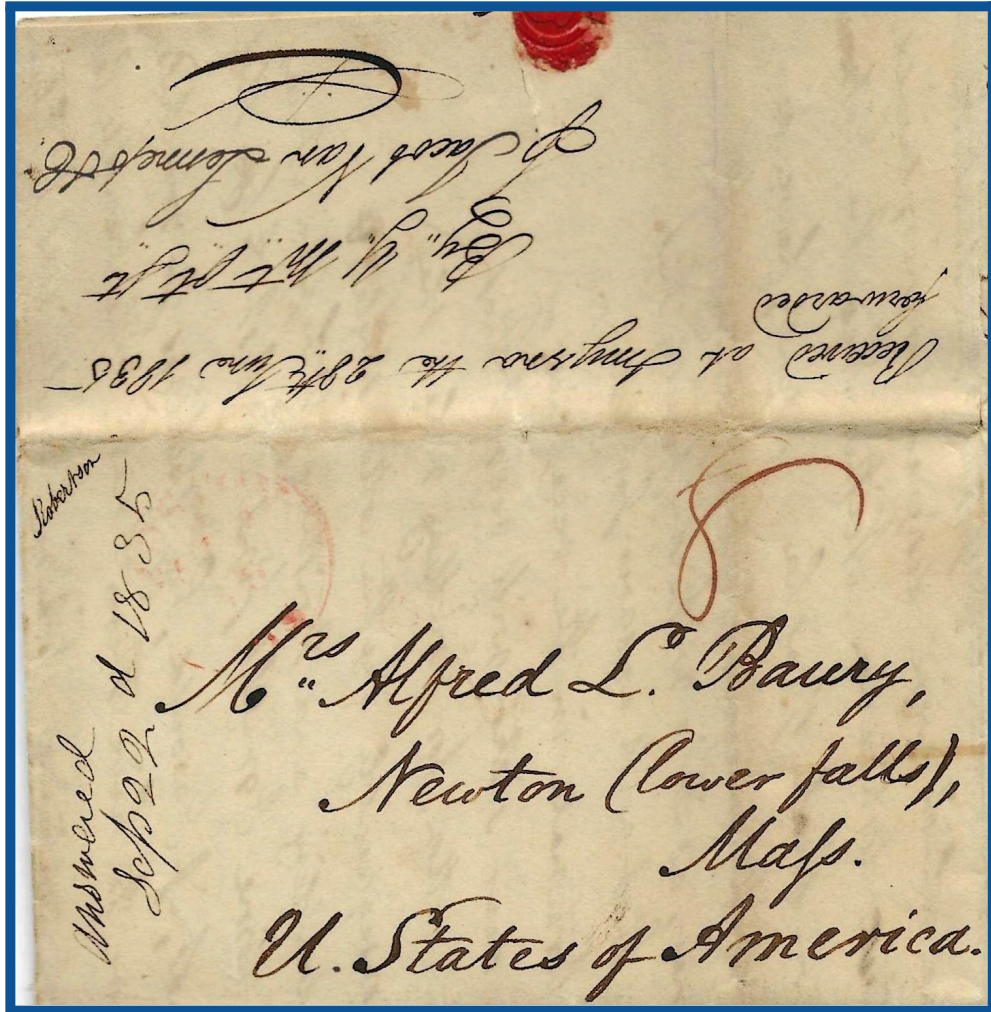 Received at Smyrna the 28th June 1835
forwarded
By
Jacob Van Lennep & C
Robertson
Answered
Sep 22 d 1835
8
Mrs Alfred L. Baury,
Newton (lower falls),
Mass.
U. States of America.